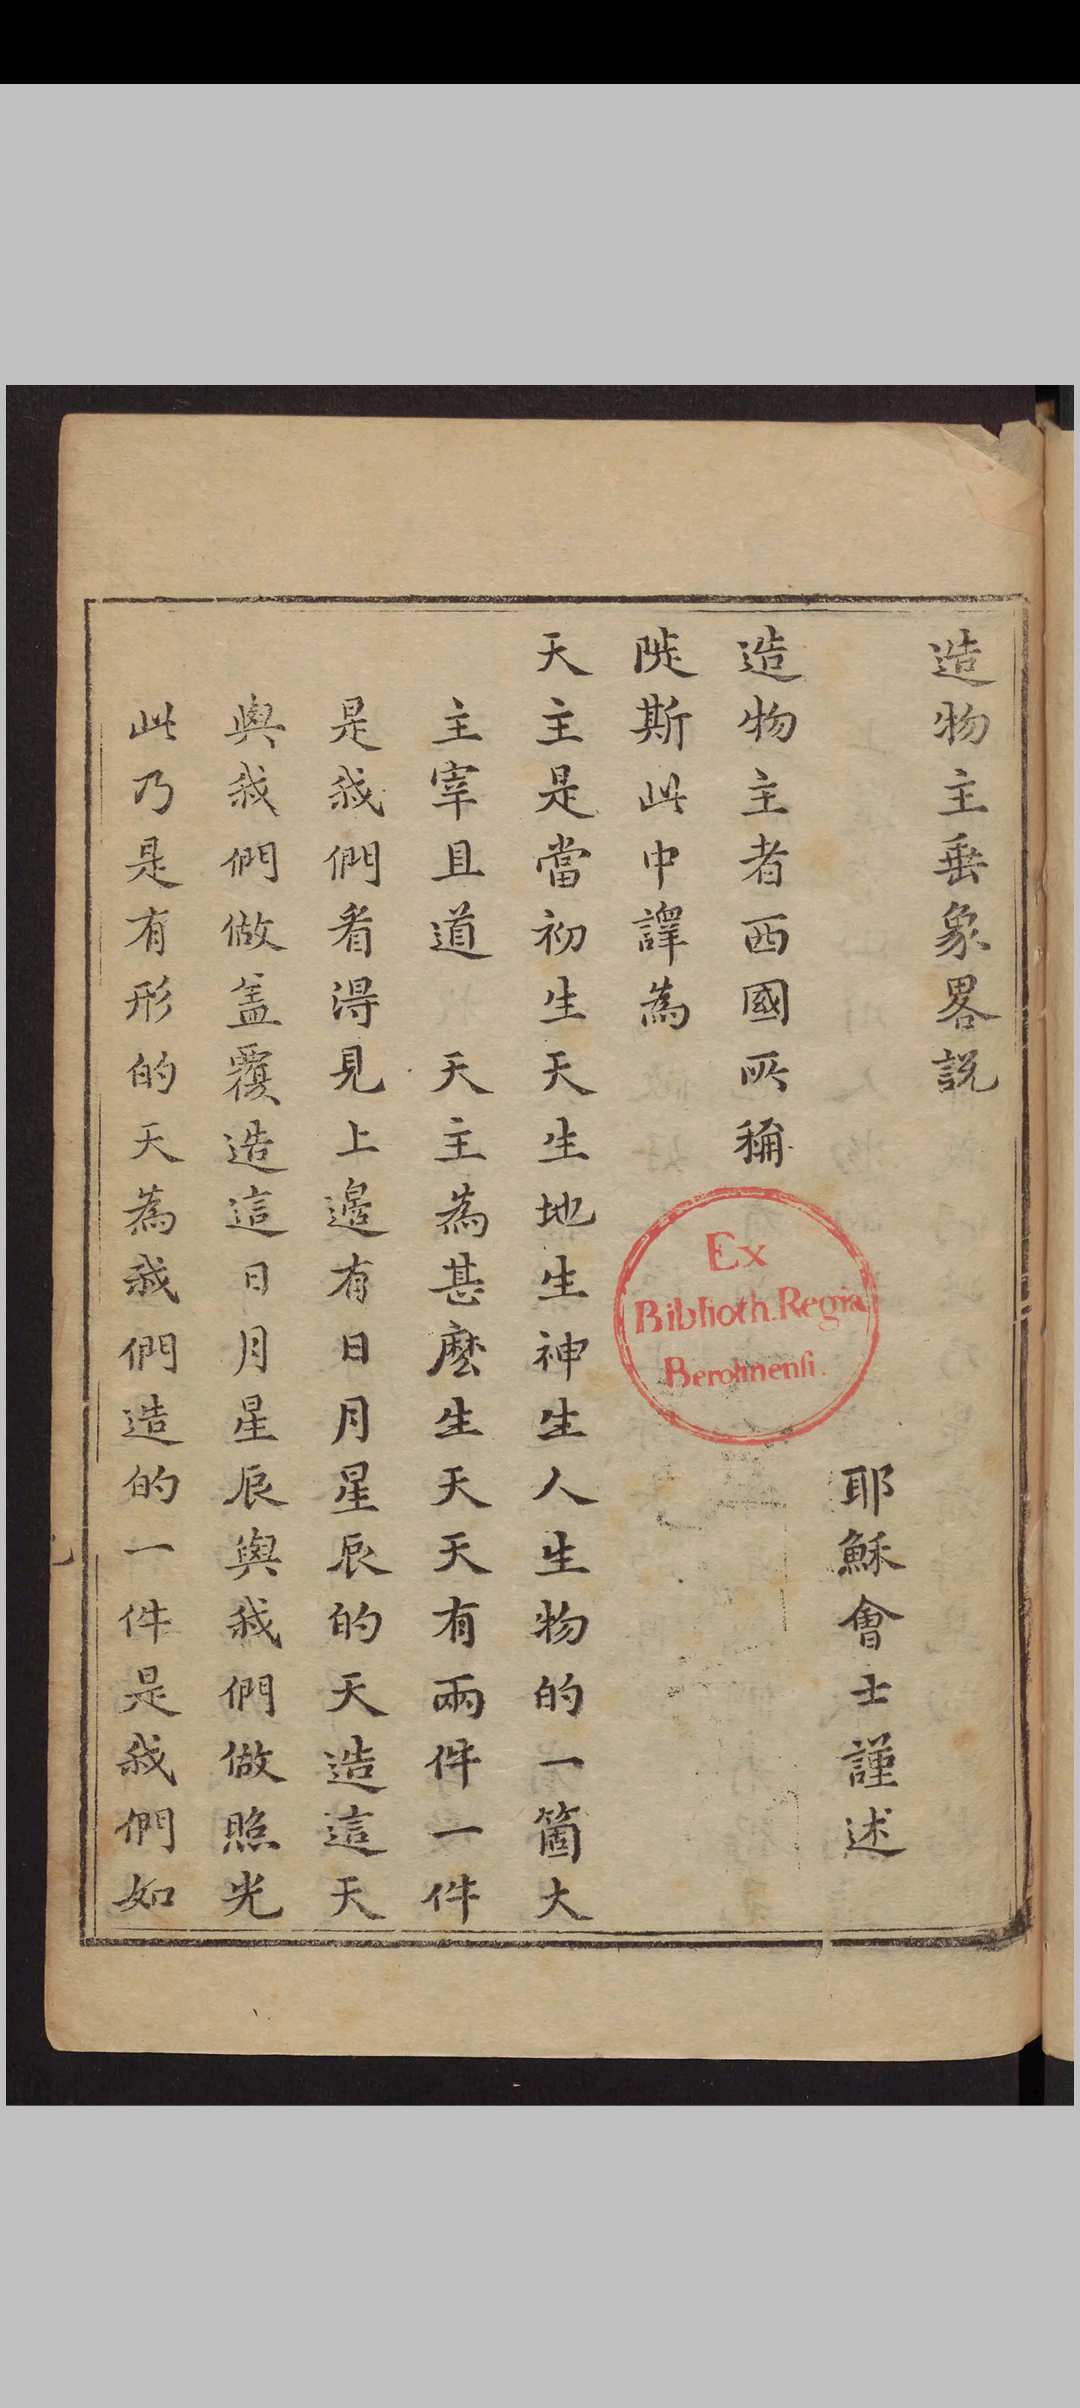 造物主垂象畧説
耶穌會士謹述
造物主者西國所稱
陡斯此中譯為
天主是當初生天生地生神生人生物的一箇大
主宰且道　天主為甚麽生天天有兩件一件
是我們看淂見上邊有日月星辰的天造這天
與我們做盖覆造這日月星辰與我們做照光
此乃是有形的天為我們造的一件是我們如
Ex
Biblioth. Regia
Berolinensi.